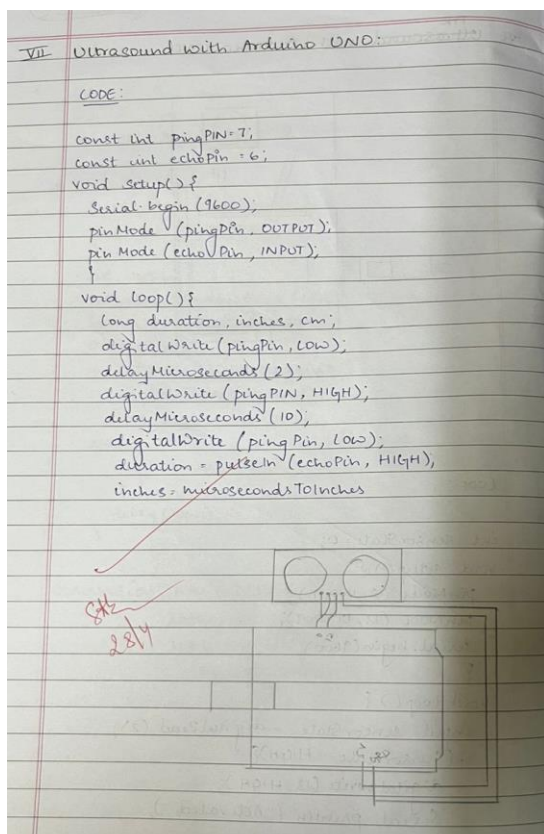 VII Ultrasound with Arduino UNO:
CODE:
const int pingPIN=7;
const unt echoPin = 6;
void setup() {
Serial.begin (9600);
pinMode (pingPin, OUTPUT);
pinMode (echo Pin, INPUT);
}
void loop() {
long duration, inches, cm;
digital Write (pingPin, LOW);
delayMicroseconds (2);
digitalWrite (pingPIN, HIGH);
delayMicroseconds (10);
digitalWrite (ping Pin, LOW);
duration = pulseIn (echoPin, HIGH);
inches = microsecondsToInches
28/4